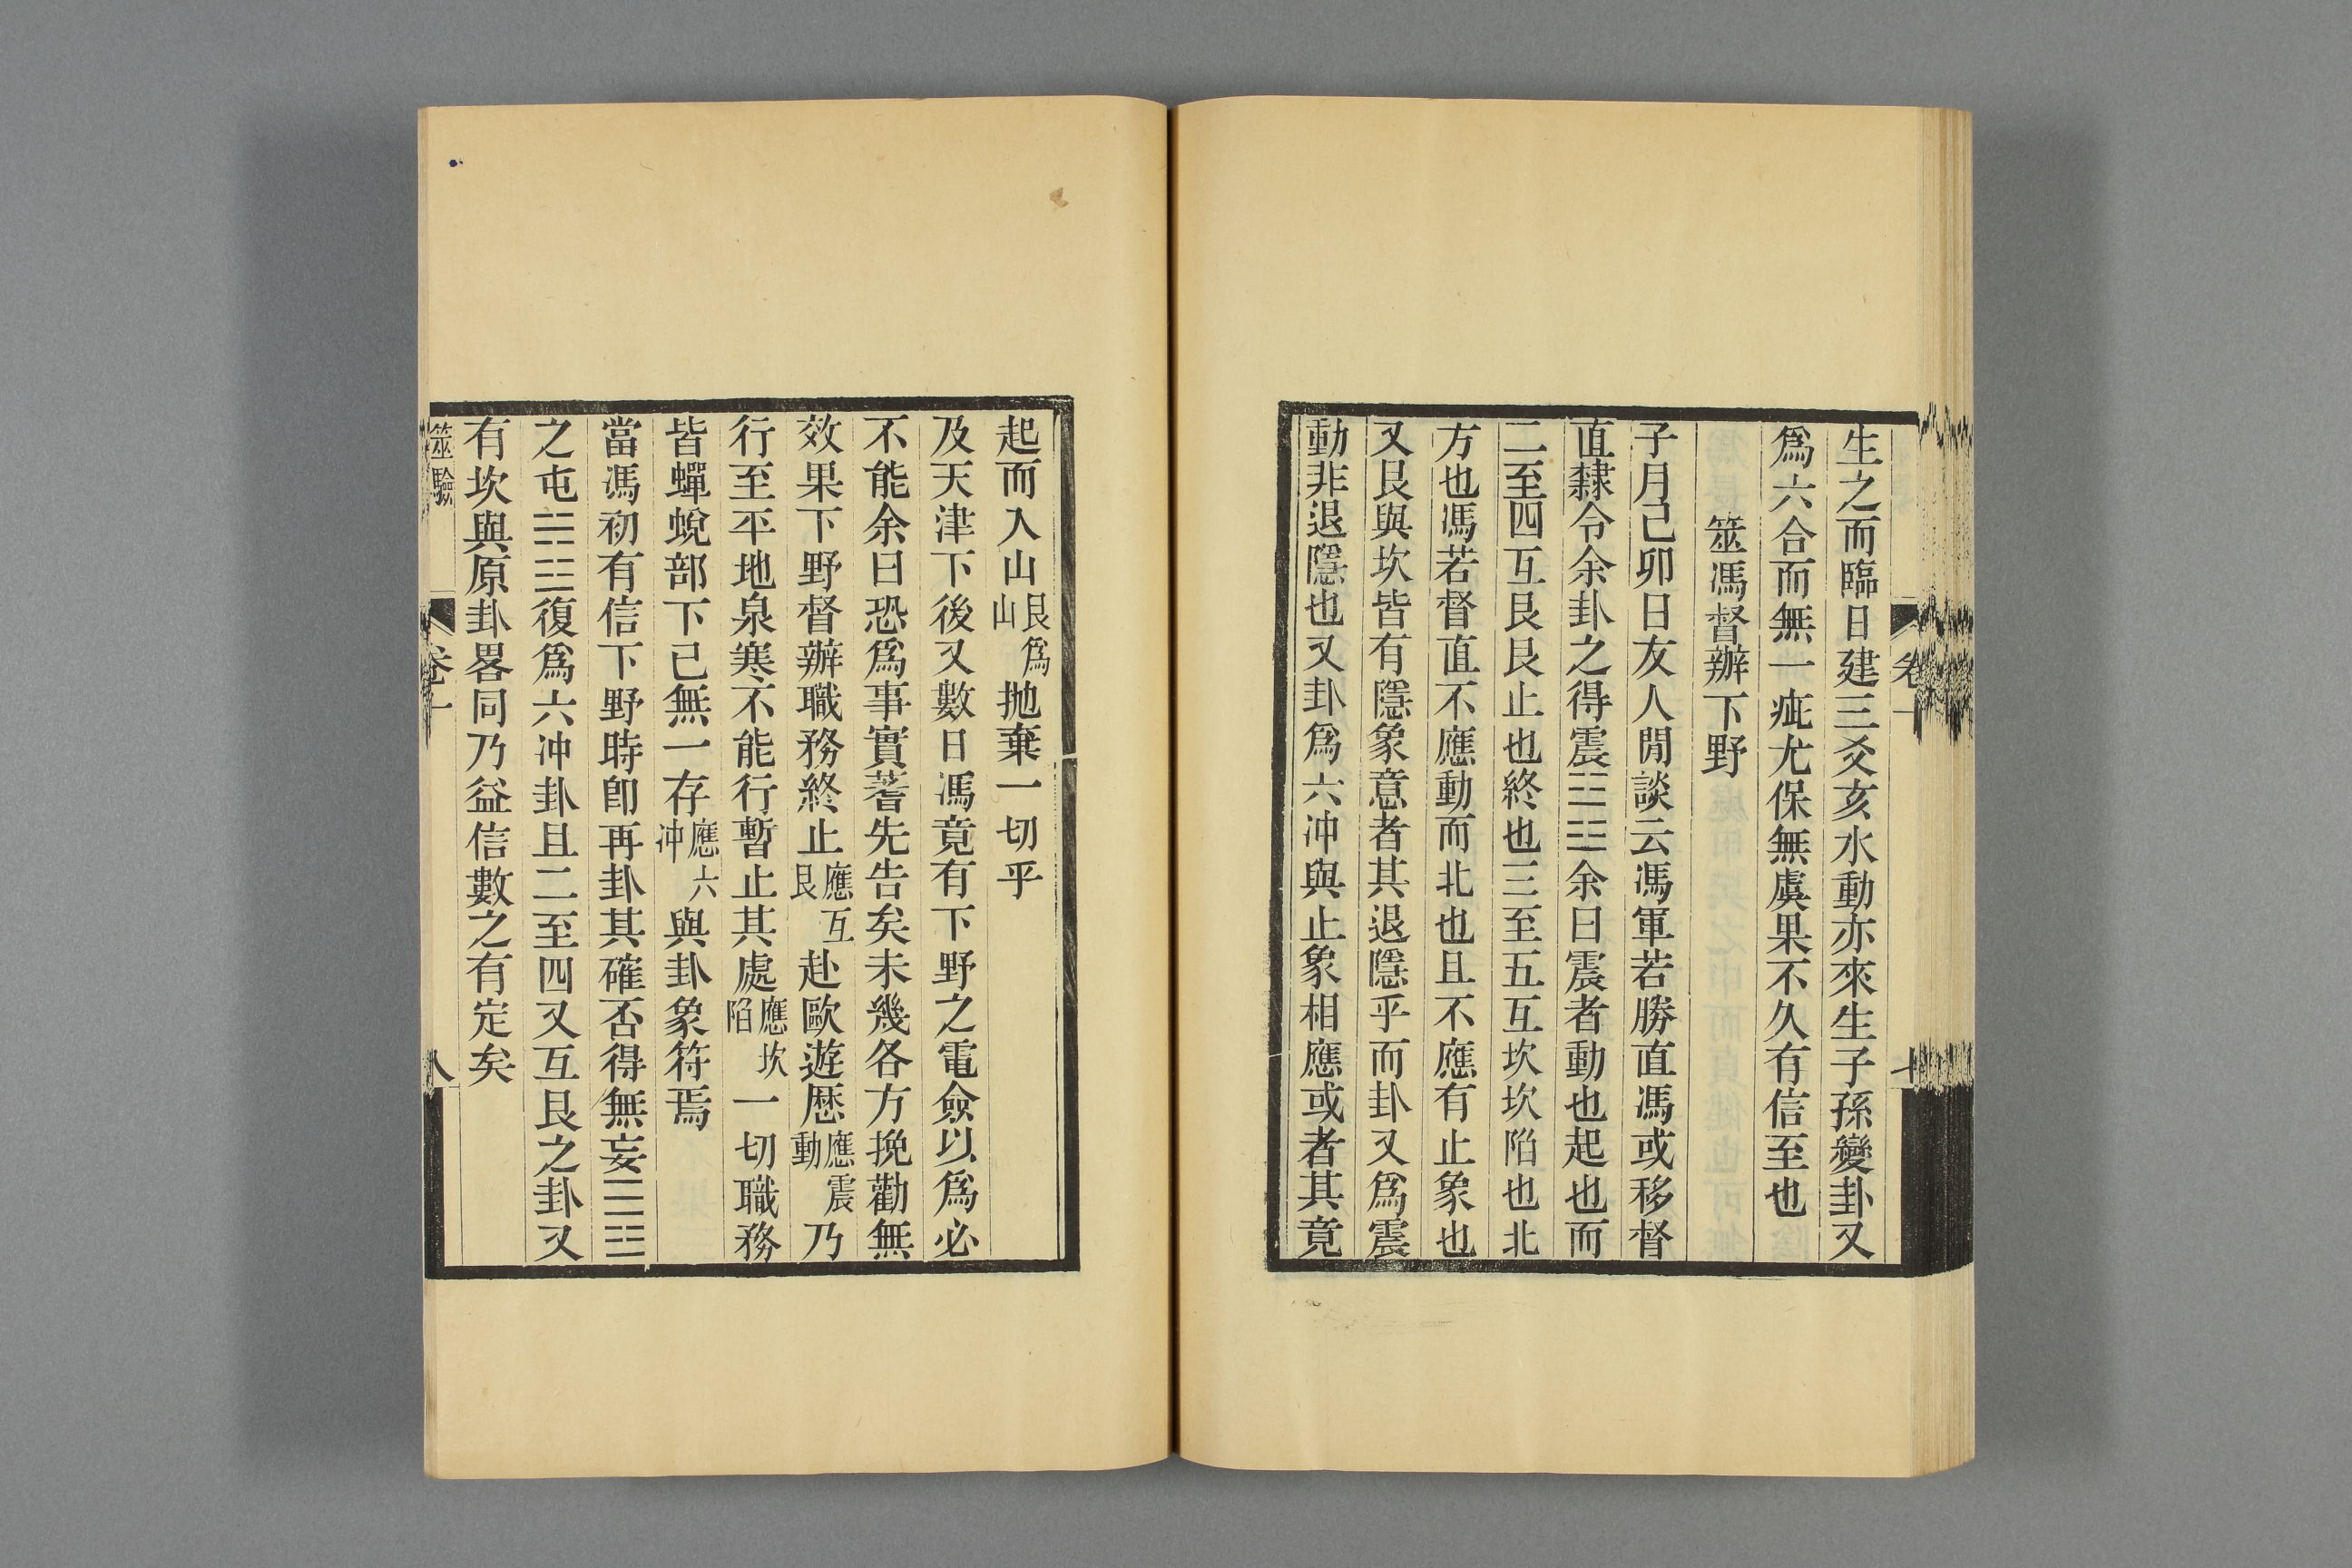 生之而臨日建三爻亥水動亦來生子孫變卦又
爲六合而無一疵尤保無虞果不久有信至也
筮馮督辦下野
子月己卯日友人閒談云馮軍若勝直馮或移督
直隸令余卦之得震☳☳余曰震者動也起也而
二至四互艮艮止也終也三至五互坎坎陷也北
方也馮若督直不應動而北也且不應有止象也
又艮與坎皆有隱象意者其退隱乎而卦又爲震
動非退隱也又卦爲六冲與止象相應或者其竟
起而入山艮爲山抛棄一切乎
及天津下後又數日馮竟有下野之電僉以爲必
不能余曰恐爲事實蓍先告矣未幾各方挽勸無
效果下野督辦職務終止應互艮赴歐遊歷應震動乃
行至平地泉寒不能行暫止其處應坎陷一切職務
皆蟬蛻部下已無一存應六冲與卦象符焉
當馮初有信下野時卽再卦其確否得無妄☰☳
之屯☵☳復爲六冲卦且二至四又互艮之卦又
有坎與原卦畧同乃益信數之有定矣
筮驗
卷十
八